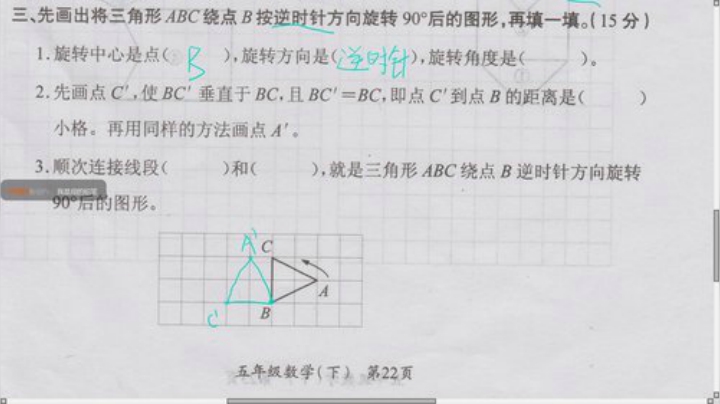 三、先画出将三角形ABC绕点B按逆时针方向旋转90°后的图形,再填一填。(15分)
1.旋转中心是点( B ),旋转方向是(逆时针),旋转角度是( )。
2.先画点C′,使BC′垂直于BC,且BC′=BC,即点C′到点B的距离是( )
小格。再用同样的方法画点A′。
3.顺次连接线段( )和( ),就是三角形ABC绕点B逆时针方向旋转
90°后的图形。
A′ C
A
C′ B
五年级数学(下) 第22页